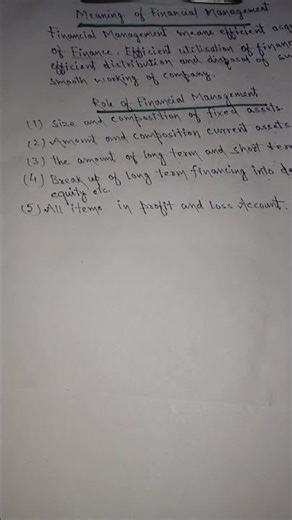 Meaning of Financial Management
Financial Management means efficient
of Finance. Efficient utilisation of
efficient distribution and disposal of
smooth working of company.
Role of Financial Management
(1) Size and composition of fixed assets
(2) Amount and composition current assets
(3) The amount of long term and short
(4) Break up of long-term financing into
equity etc.
(5) All items in profit and loss Account.